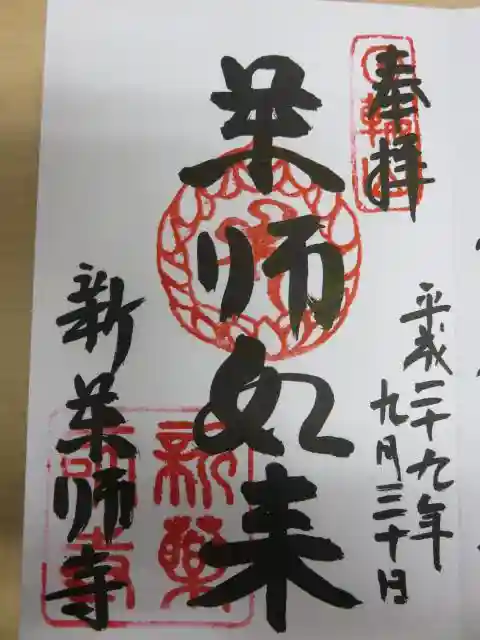 奉拝
平成二十九年
九月三十日
薬师如来
新薬师寺
新薬
師寺